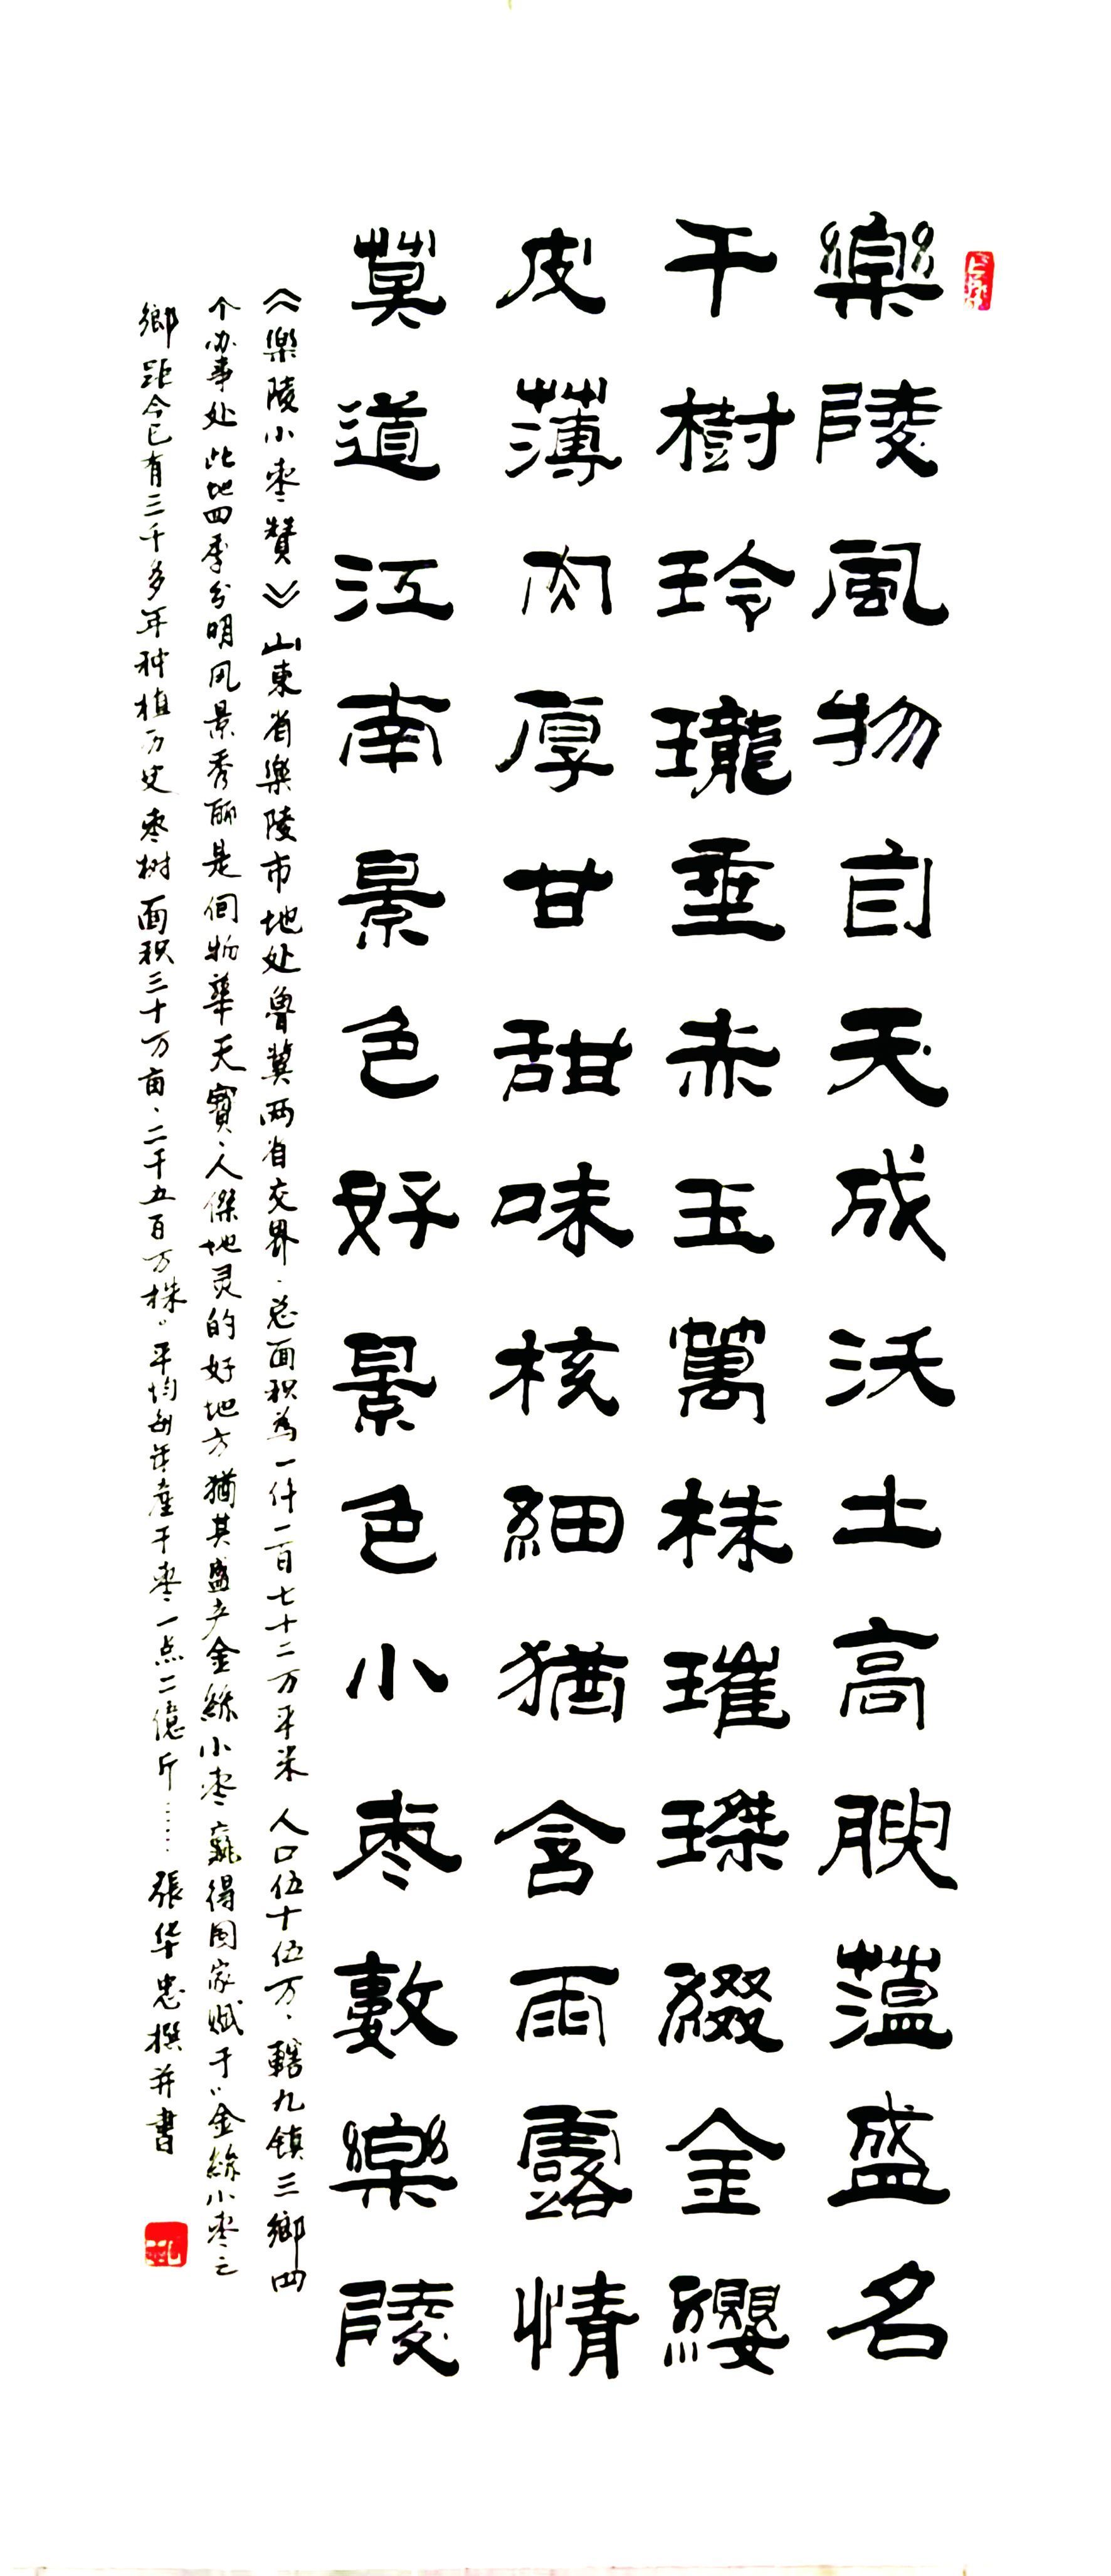 樂陵風物自天成沃土高腴薀盛名
千樹玲瓏垂赤玉萬株璀璨綴金纓
皮薄肉厚甘甜味核細猶含雨露情
莫道江南景色好景色小枣數樂陵
《樂陵小枣赞》山東省樂陵市地处魯冀两省交界、总面积為一仟一百七十二万平米 人口伍十伍万、轄九鎮三鄉四
个办事处 此地四季分明风景秀丽是個物華天寳、人傑地灵的好地方猶其盛产金絲小枣贏得国家赋于“金絲小枣之
鄉 距今已有三千多年种植历史 枣树面积三十万亩、二千五百万株”平均每年産干枣一点二億斤……張华忠撰并書